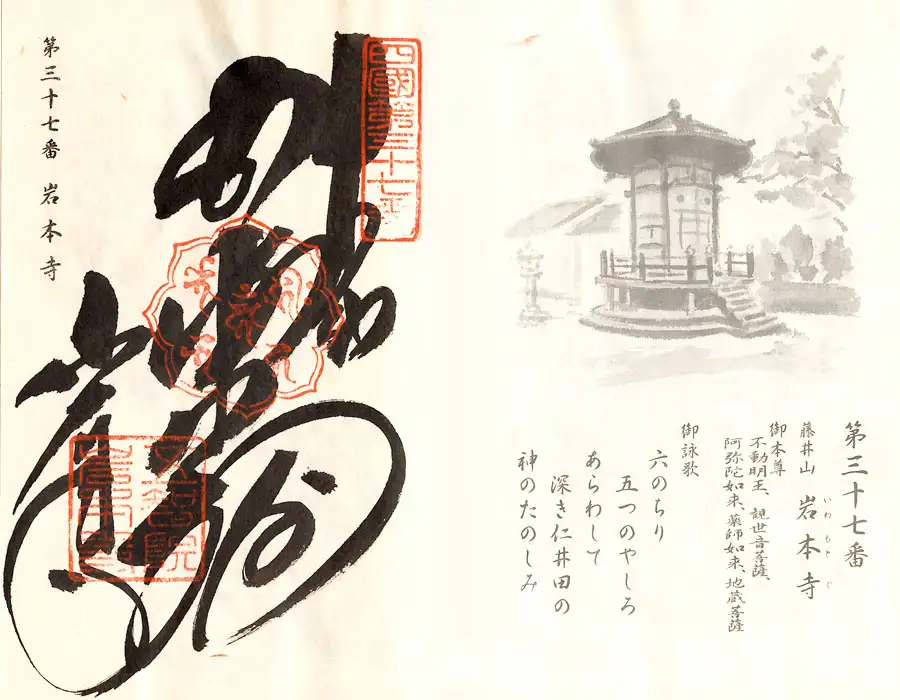 第三十七番
藤井山 岩本寺
いわもとじ
御本尊
不動明王、観世音菩薩、
阿弥陀如来、薬師如来、地蔵菩薩
御詠歌
六のちり
五つのやしろ
あらわして
深き仁井田の
神のたのしみ
四國第三十七番
岩本寺
第三十七番 岩本寺